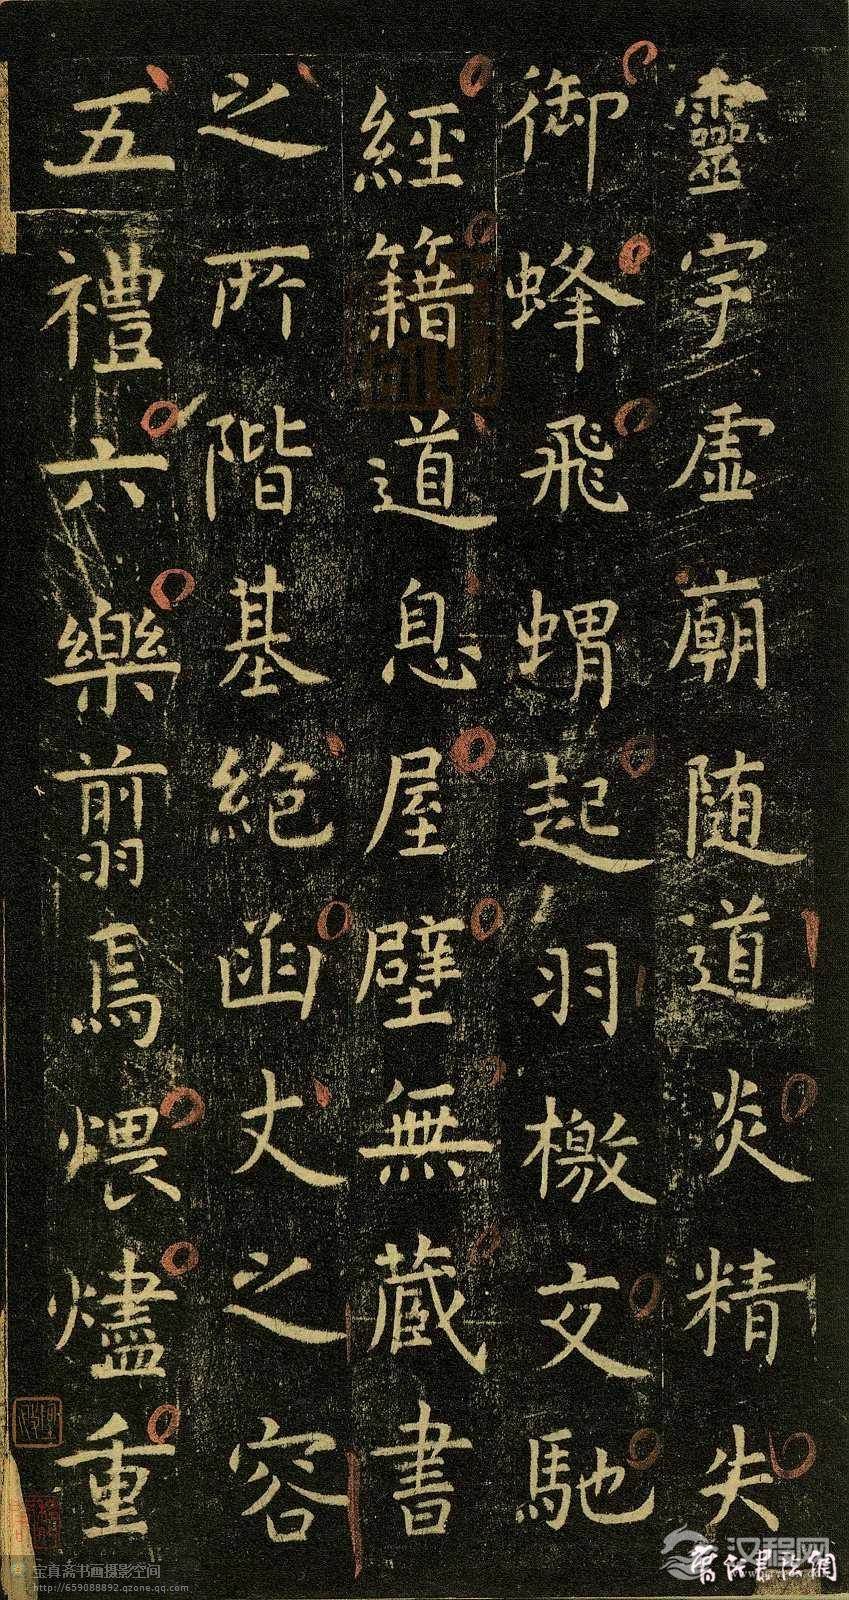 靈宇虛廟随道炎精失
御蜂飛蝟起羽檄交馳
經籍道息屋壁無蔵書
之所階基絶函丈之容
五禮六樂翦焉煨燼重
宝真斋书画摄影空间
http://659088892.qzone.qq.com
汉程网